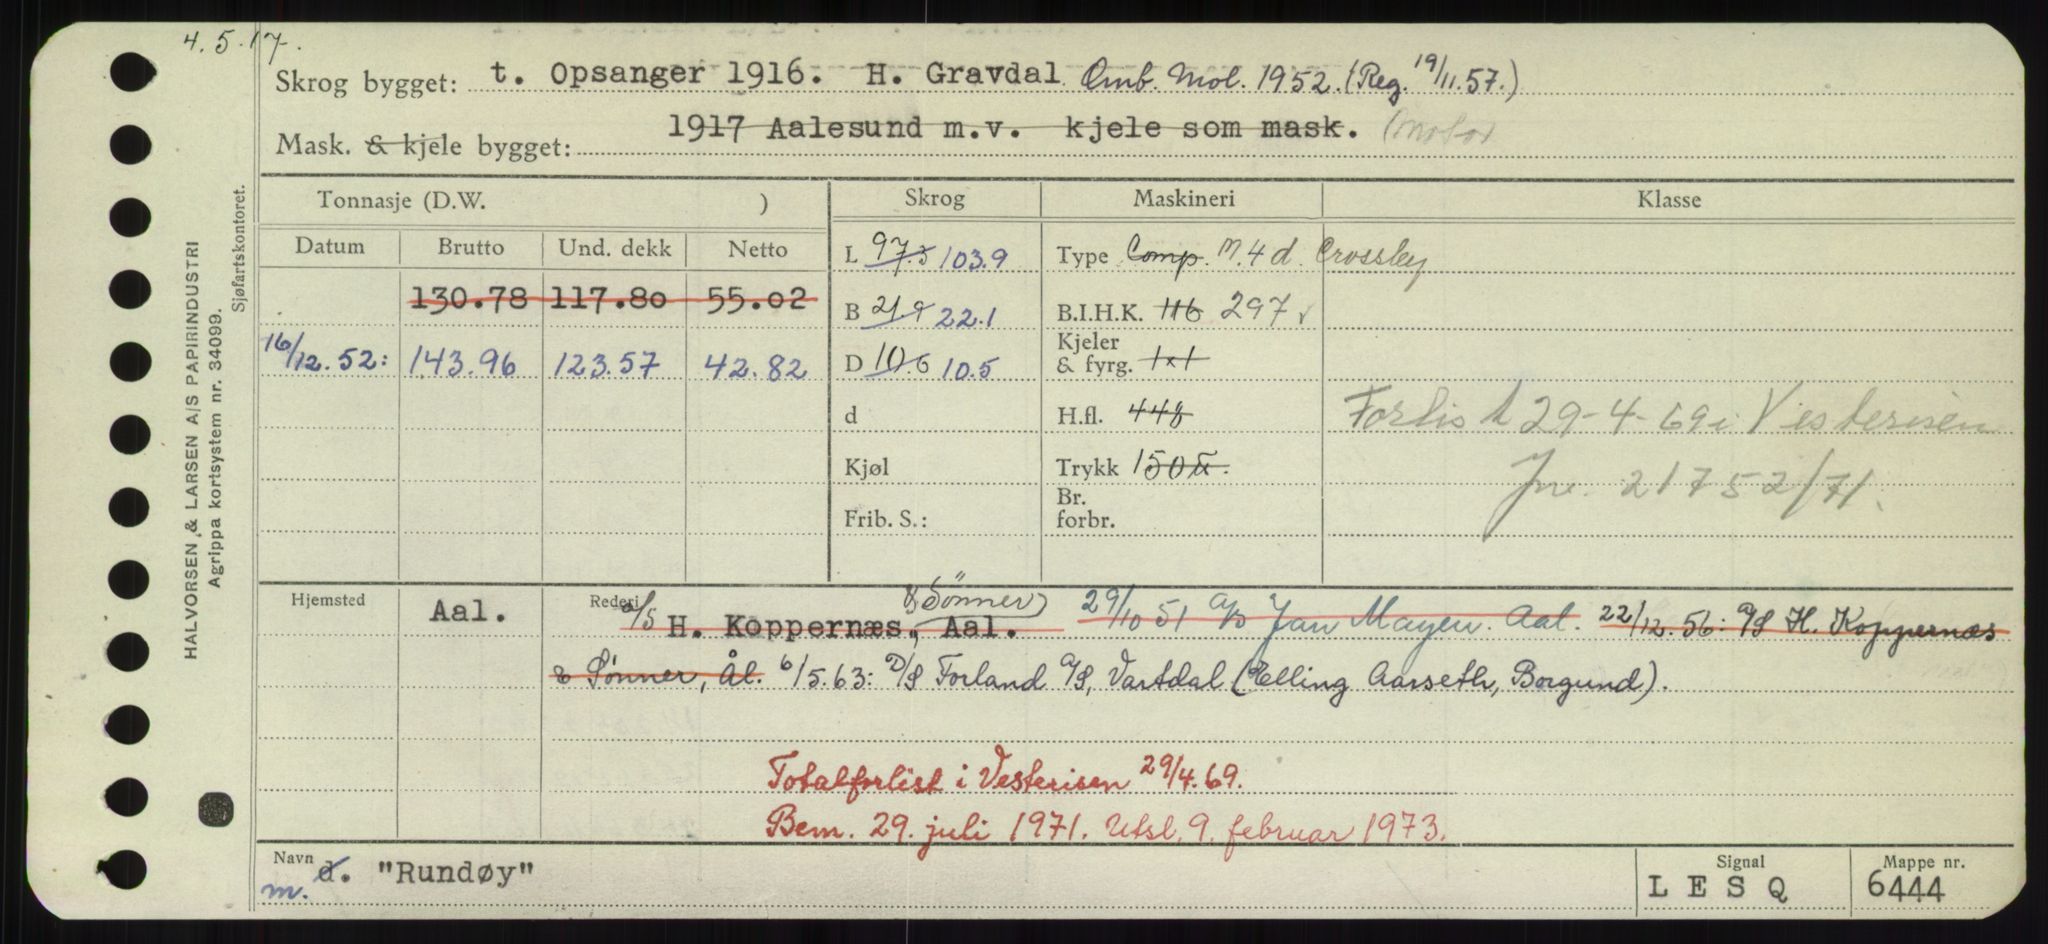 4.5.17.
Skrog bygget: t. Opsanger 1916. H. Gravdal Omb. Mol. 1952. (Reg. 19/11.57.)
Mask. & kjele bygget: 1917 Aalesund m.v. kjele som mask. (Motor
HALVORSEN & LARSEN A/S PAPIRINDUSTRI
Agrippa kortsystem nr. 34099.
Sjøfartskontoret.
Tonnasje (D.W. ) Skrog Maskineri Klasse
Datum Brutto Und. dekk Netto
L 97.5 103.9 Type Comp. M. 4 d. Crossley
130.78 117.80 55.02
B 21.9 22.1 B.I.H.K. 116 297
16/12.52: 143.96 123.57 42.82
D 10.6 10.5 Kjeler & fyrg. 1x1
d H.fl. 448 Forlis t 29-4-69 i Vesterisen
Kjøl Trykk 150 Jnr. 21752/71.
Frib. S.: Br. forbr.
Hjemsted Aal. Rederi a/s H. Koppernæs, & Sønner Aal. 29/10 51 a/s Jan Mayen. Aal. 22/12.56: A/S H. Koppernæs
& Sønner, Ål. 6/5.63: D/S Forland A/S, Vartdal (Elling Aarseth, Borgund).
Totalforlist i Vesterisen 29/4.69.
Bem. 29. juli 1971. Utsl. 9. februar 1973.
Navn d. m. "Rundøy" Signal LESQ Mappe nr. 6444